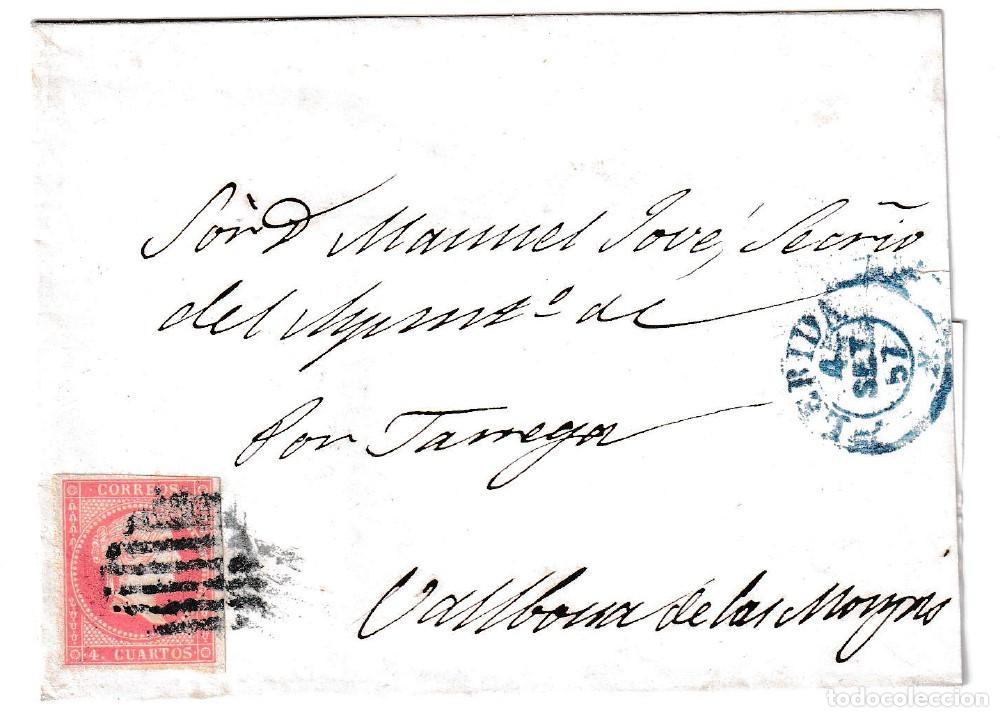 Sör D Manuel Jové, Secrio
del Ayimto de
Por Tarrega
Vallbona de las Monjas
LERIDA
SET
57
CORREOS
4. CUARTOS
todocoleccion